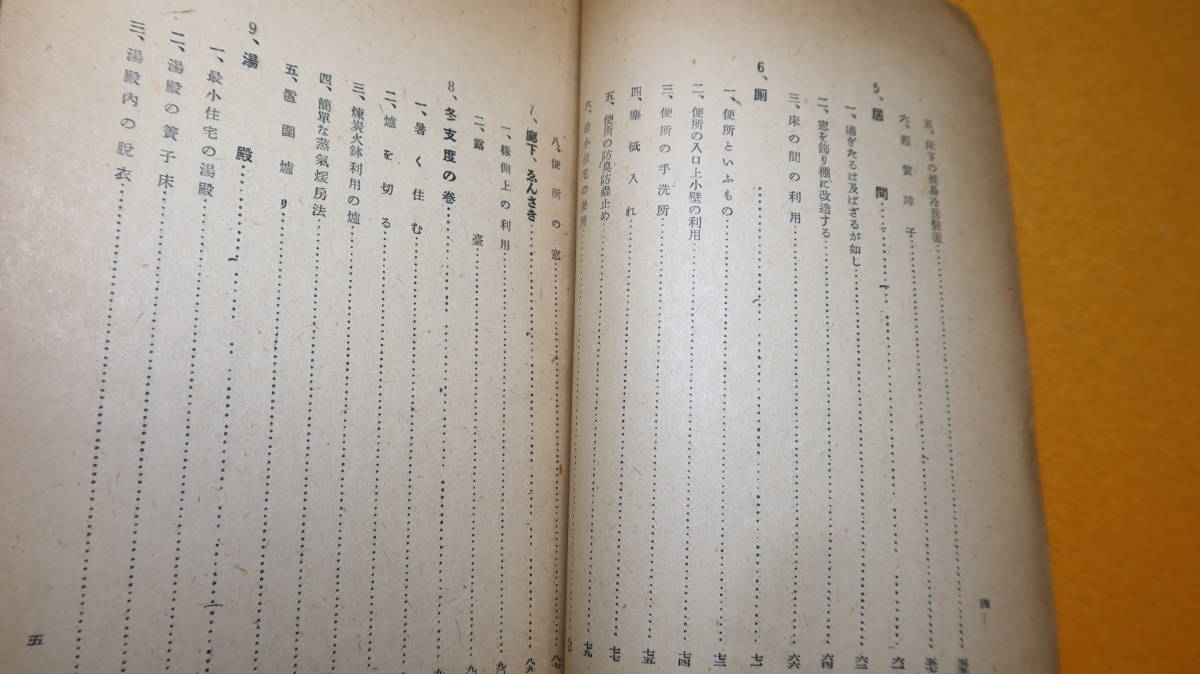 五、床下の簡易冷房裝置……五五
六、障子……五七
5、居間……六一
一、過ぎたるは及ばざるが如し……六二
二、窓を飾り棚に改造する……六四
三、床の間の利用……六六
6、厠……七一
一、便所といふもの……七二
二、便所の入口上小壁の利用……七四
三、便所の手洗所……七五
四、塵紙入れ……七七
五、便所の防臭防蟲止め……七九
六、最小住宅の便所
四
八、便所の窓……八七
7、廊下、ゑんさき……八九
一、椽側上の利用
二、露臺
8、冬支度の卷
一、暑く住む
二、爐を切る
三、煉炭火鉢利用の爐
四、簡單な蒸氣煖房法
五、置圍爐り
9、湯殿
一、最小住宅の湯殿
二、湯殿の簀子床
三、湯殿內の脫衣
五